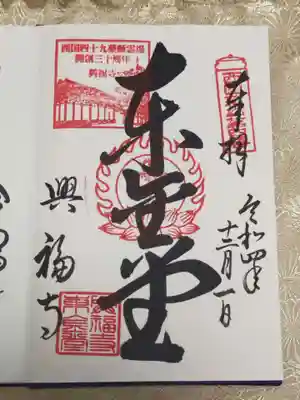 奉拝
令和四年
十二月一日
東金堂
西国四十九薬師霊場
開創三十周年
興福寺
興福寺
東金堂